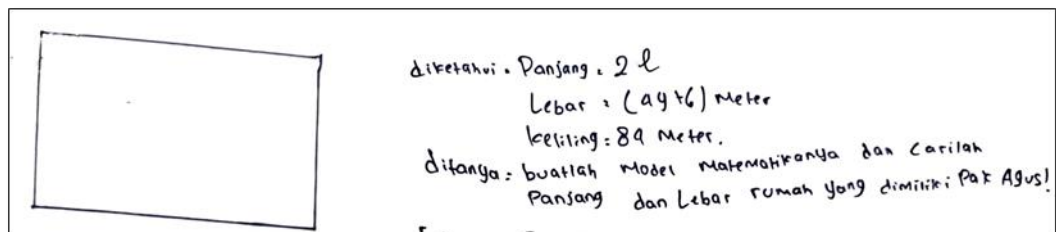 diketahui. Panjang : 2 l
Lebar : (ay+6) Meter
keliling : 84 Meter.
ditanya = buatlah Model Matematikanya dan Carilah
Panjang dan Lebar rumah yang dimiliki Pak Agus!